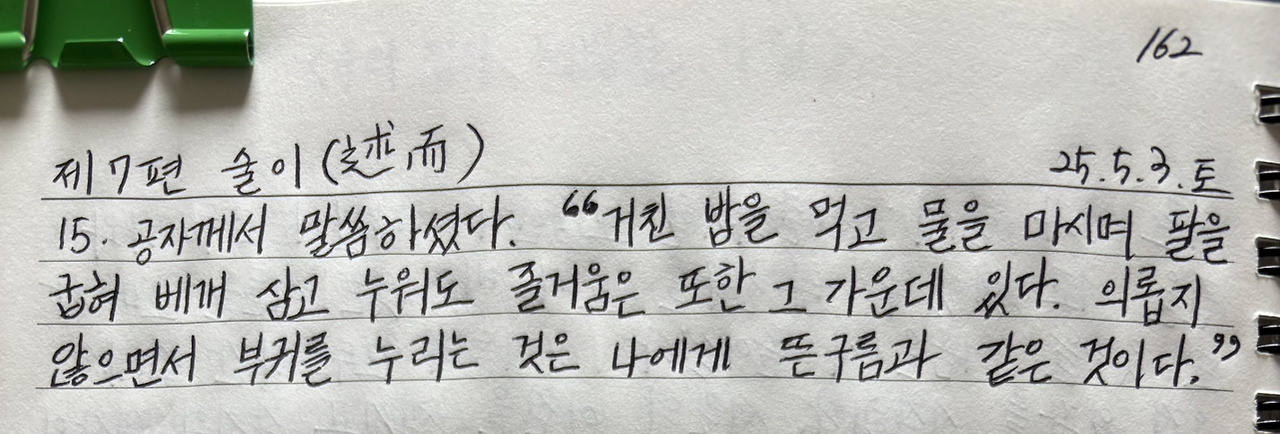 162
제7편 술이(述而) 25.5.3.토
15. 공자께서 말씀하셨다. “거친 밥을 먹고 물을 마시며 팔을
굽혀 베개 삼고 누워도 즐거움은 또한 그 가운데 있다. 의롭지
않으면서 부귀를 누리는 것은 나에게 뜬구름과 같은 것이다.”